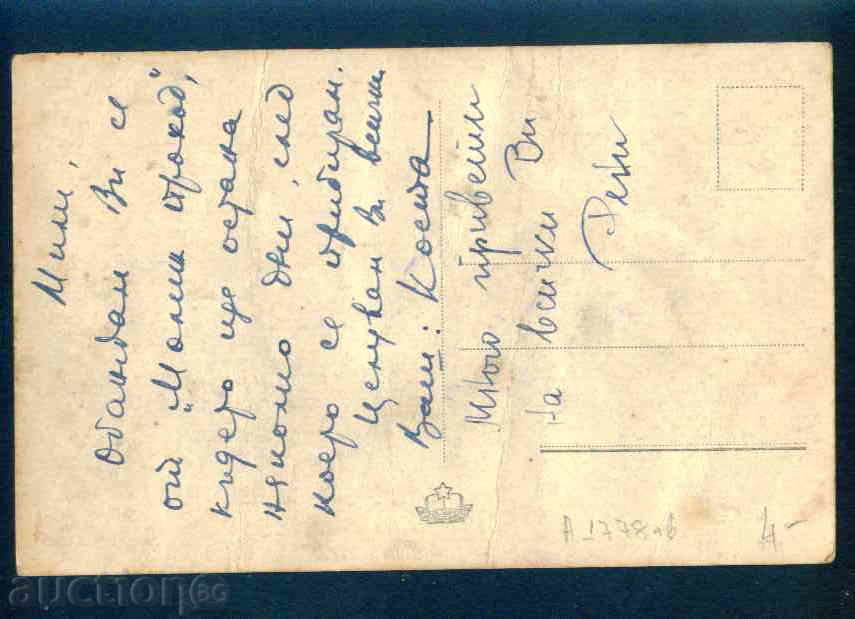 Мили,
Обаждам Ви се
от "Малък преход",
където ще остана
няколко дни, след
което се прибирам.
Целувам Ви всички
Ваш: Коста
Много привети
на всички Ви
Рени
A_1778_в
4-
аукционбг